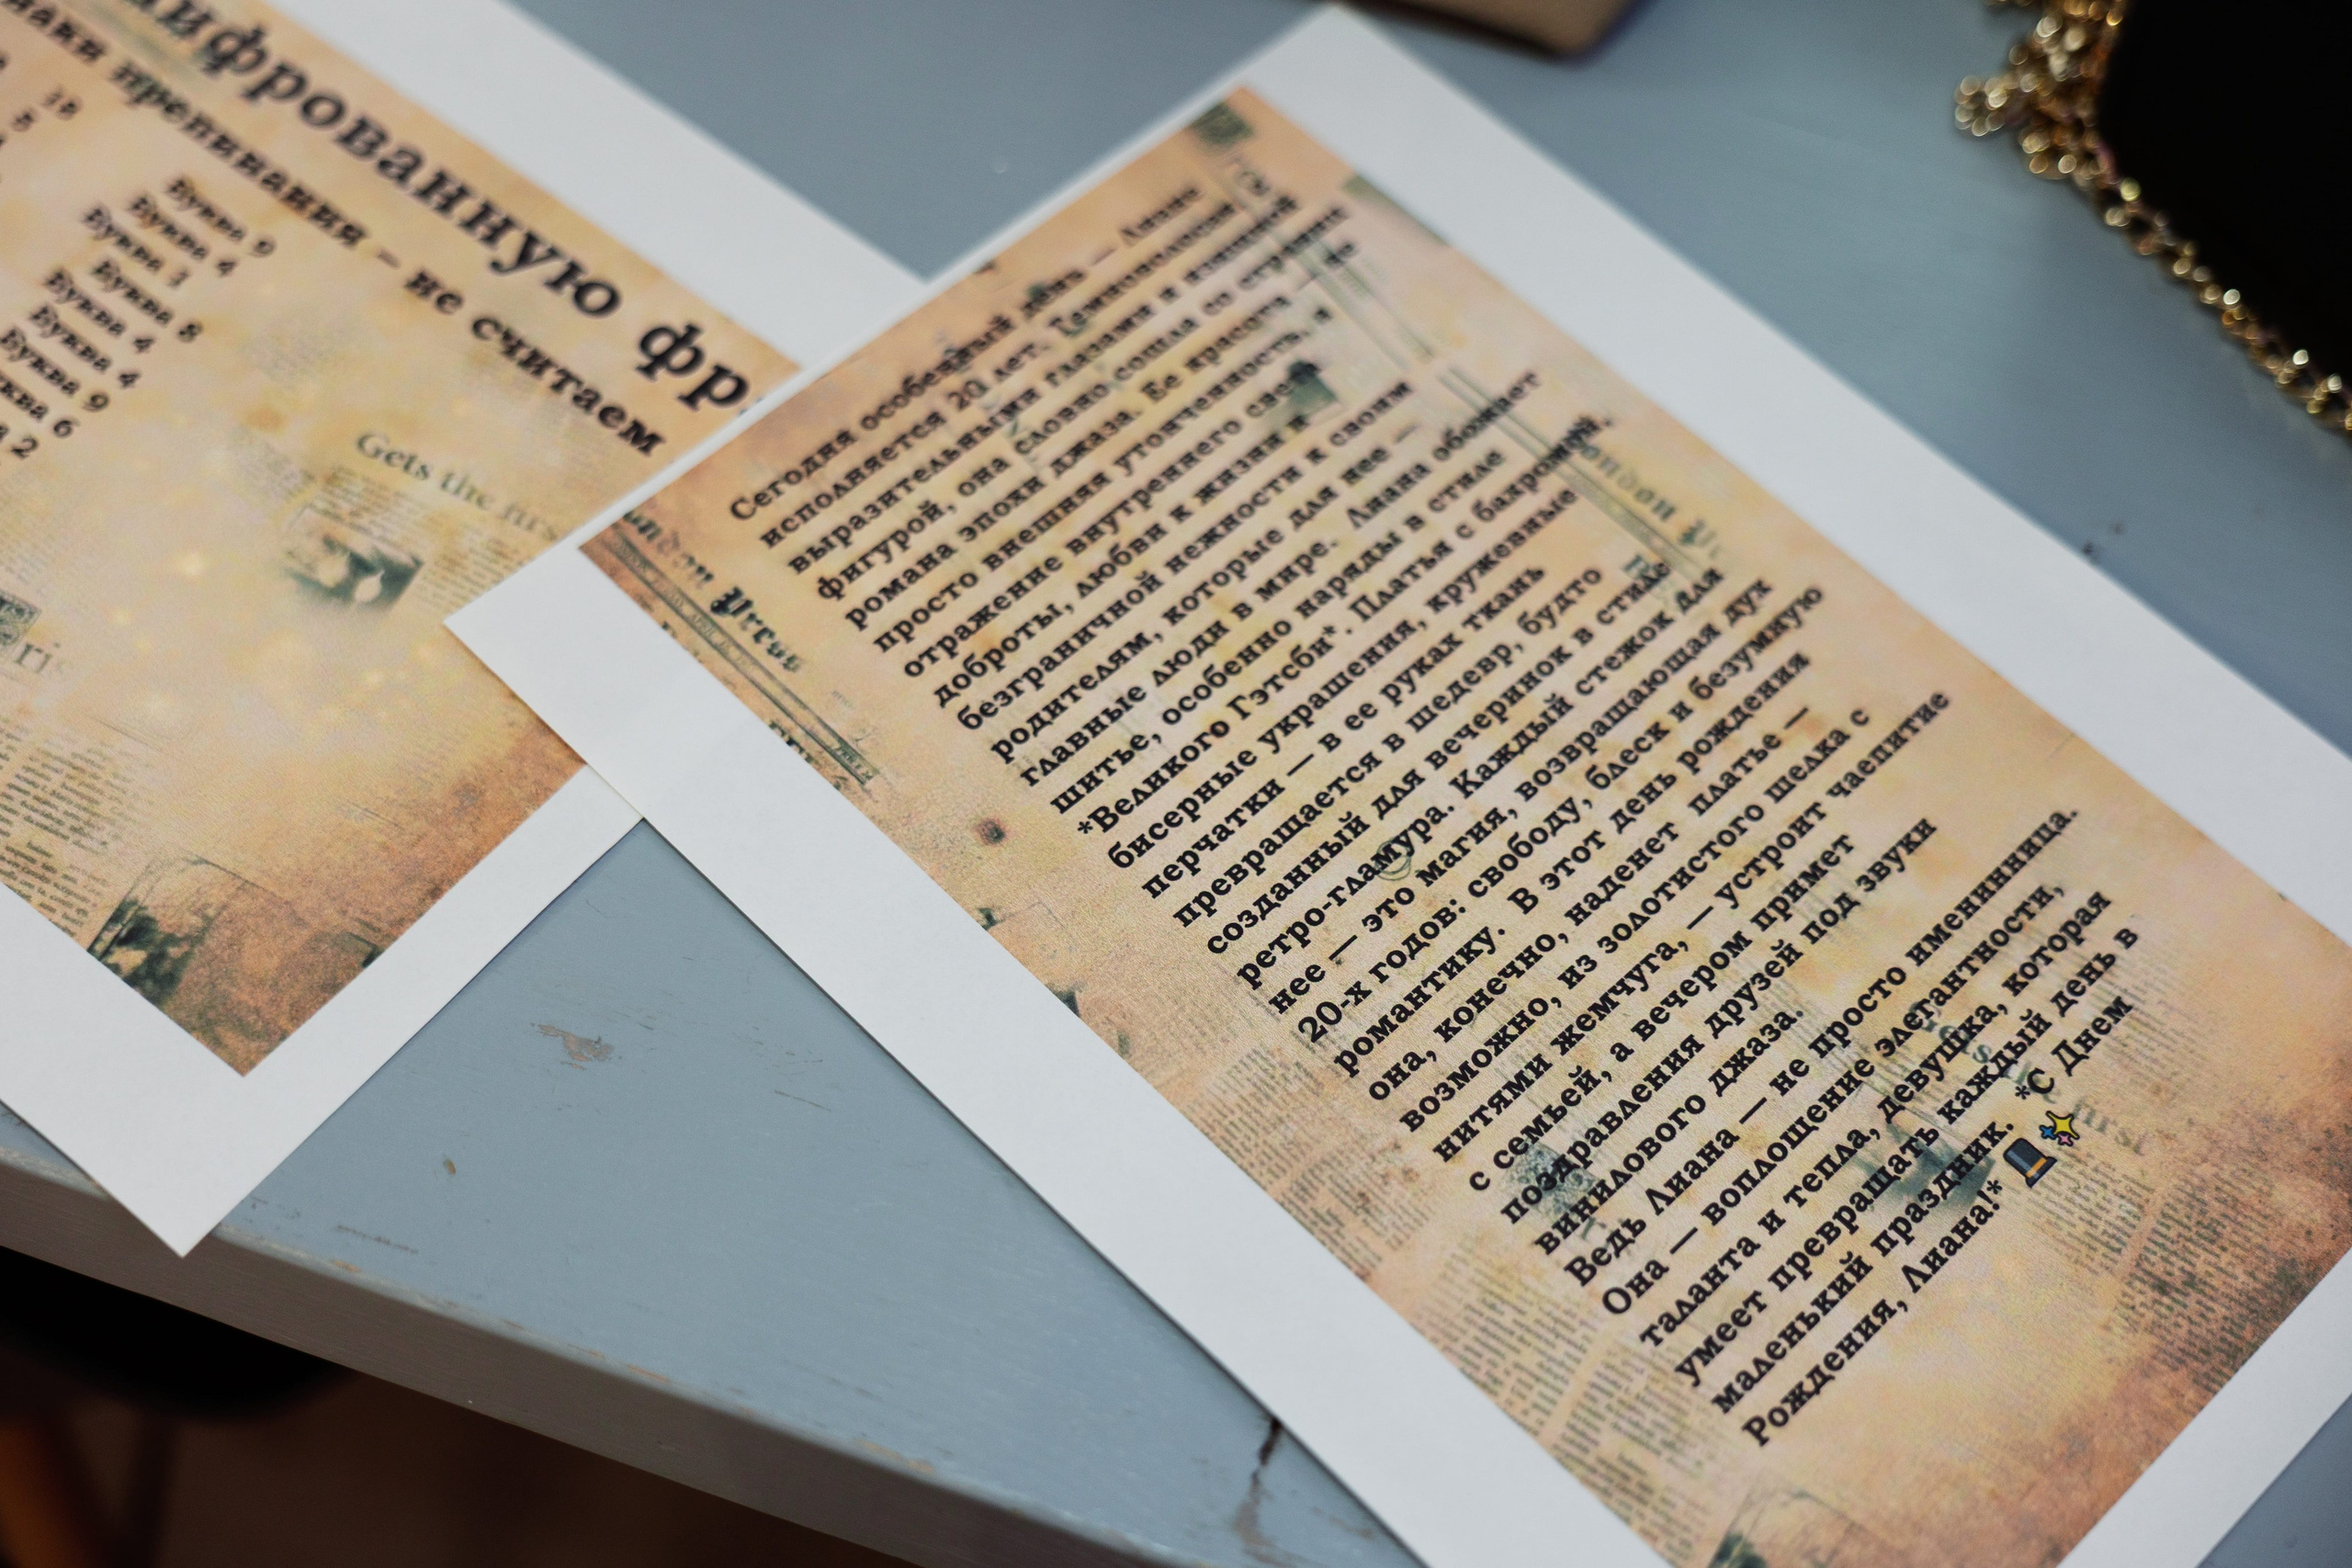 ифрованную фр
знаки препинания – не считаем
18
5
Буква 9
Буква 4
Буква 1
Буква 8
Буква 4
Буква 4
Буква 9
Буква 6
2
Gets the first
Сегодня особенный день — Лиане
исполняется 20 лет. с
выразительными глазами и изящной
фигурой, она словно сошла со страниц
романа эпохи джаза. Ее красота — не
просто внешняя утонченность, а
отражение внутреннего света
доброты, любви к жизни и
безграничной нежности к своим
родителям, которые для нее —
главные люди в мире. Лиана обожает
шитье, особенно наряды в стиле
*Великого Гэтсби*. Платья с бахромой,
бисерные украшения, кружевные
перчатки — в ее руках ткань
превращается в шедевр, будто
созданный для вечеринок в стиле
ретро-гламура. Каждый стежок для
нее — это магия, возвращающая дух
20-х годов: свободу, блеск и безумную
романтику. В этот день рождения
она, конечно, наденет платье —
возможно, из золотистого шелка с
нитями жемчуга, — устроит чаепитие
с семьей, а вечером примет
поздравления друзей под звуки
винилового джаза.
Ведь Лиана — не просто именинница.
Она — воплощение элегантности,
таланта и тепла, девушка, которая
умеет превращать каждый день в
маленький праздник. *С Днем
Рождения, Лиана!* 🎩✨
London Press